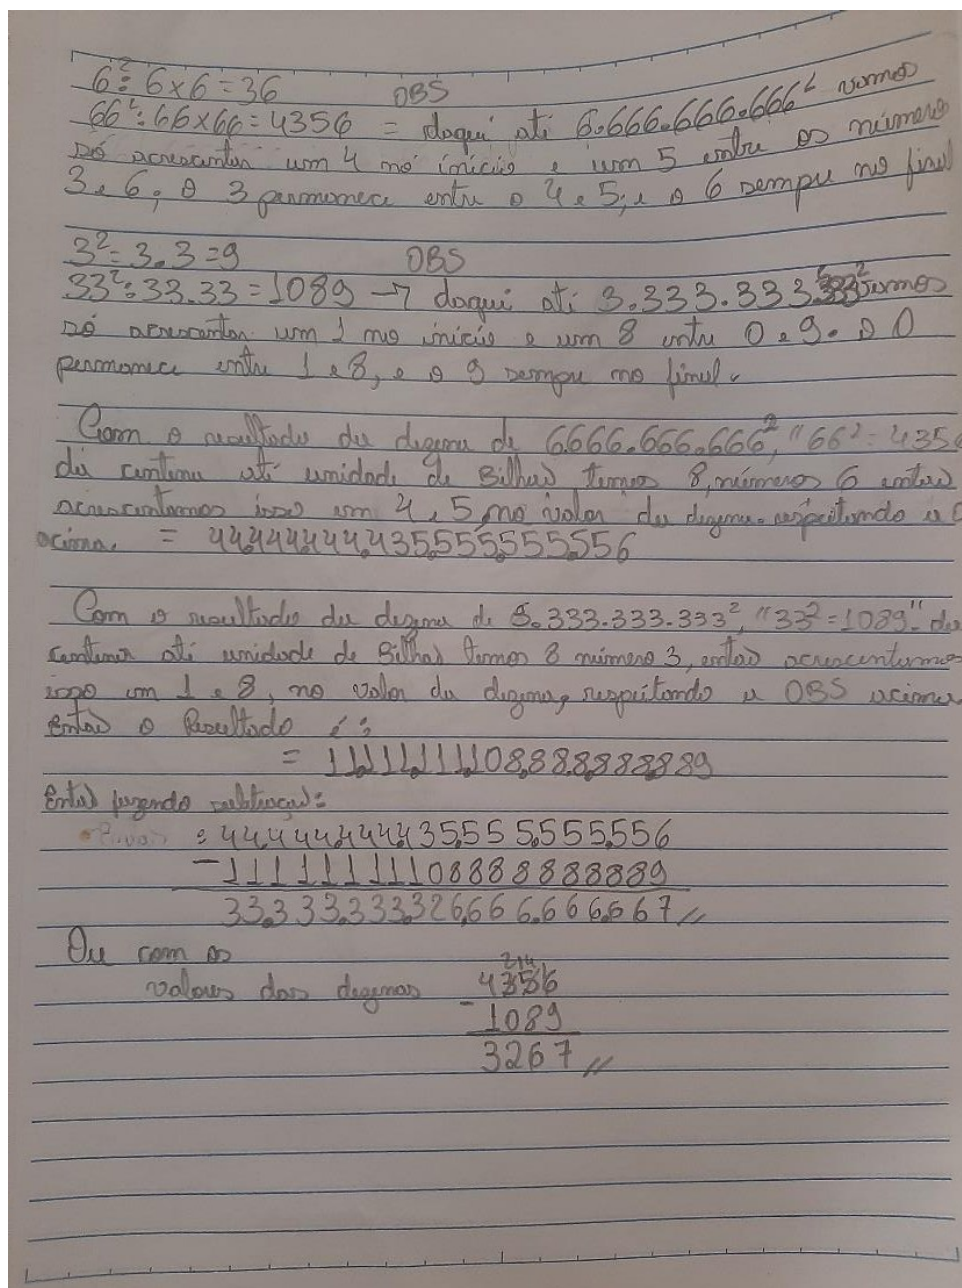 6²: 6x6=36 OBS
66²: 66x66=4356 = daqui até 6.666.666.666² vamos
só acrescentar um 4 no início e um 5 entre os número
3 e 6; o 3 permanece entre o 4 e 5; e o 6 sempre no final
3²= 3.3=9 OBS
33²: 33.33=1089 → daqui até 3.333.333.333² vamos
só acrescentar um 1 no início e um 8 entre 0 e 9. o 0
permanece entre 1 e 8, e o 9 sempre no final.
Com o resultado da dezena de 6666.666.666², "66²=4356
da centena até unidade de Bilhão temos 8, números 6 então
acrescentamos isso em 4, 5, no valor da dezena. respeitando a O
acima. = 44.444.444.435.555.555.556
Com o resultado da dezena de 3.333.333.333², "33²=1089". da
centena até unidade de Bilhão temos 8 número 3, então acrescentamos
isso em 1 e 8, no valor da dezena, respeitando a OBS acima
Então o Resultado é:
= 11.111.111.108.888.888.889
Então fazendo subtração:
: 44.444.444.435.555.555.556
- 11111111108888888889
33.333.333.326.666.666.667 //
Ou com os
valores das dezenas 4356
- 1089
3267 //